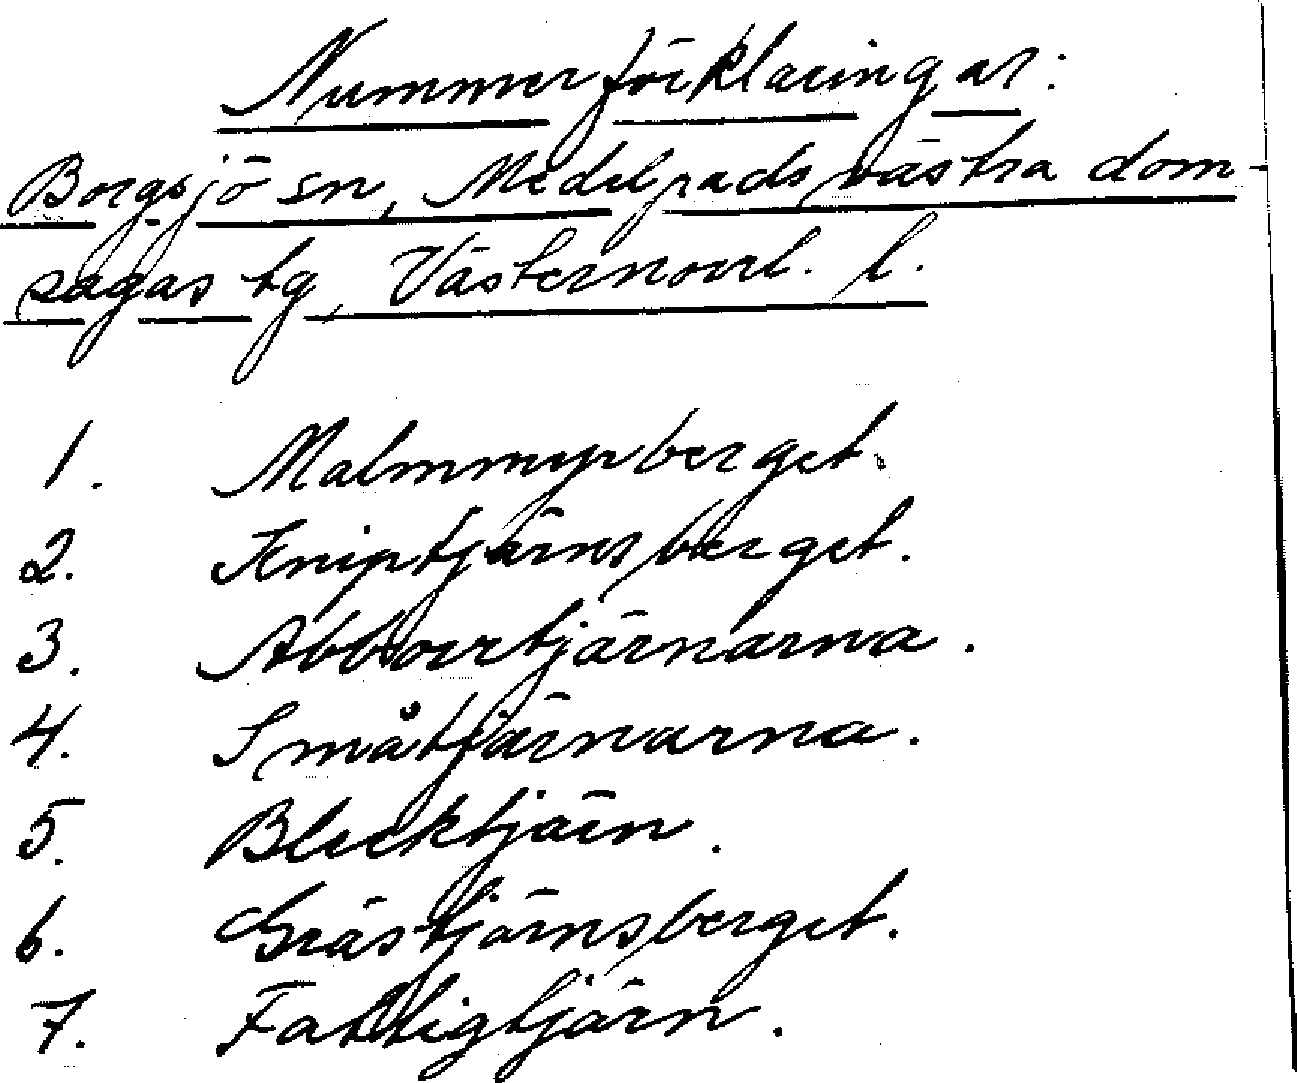 Nummerförklaringar:
Borgsjö sn, Medelpads västra dom-
sagas tg, Västernorrl. l.
1. Malmmyrberget.
2. Kniptjärnsberget.
3. Abborrtjärnarna.
4. Småtjärnarna.
5. Blecktjärn.
6. Grästjärnsberget.
7. Fattigtjärn.